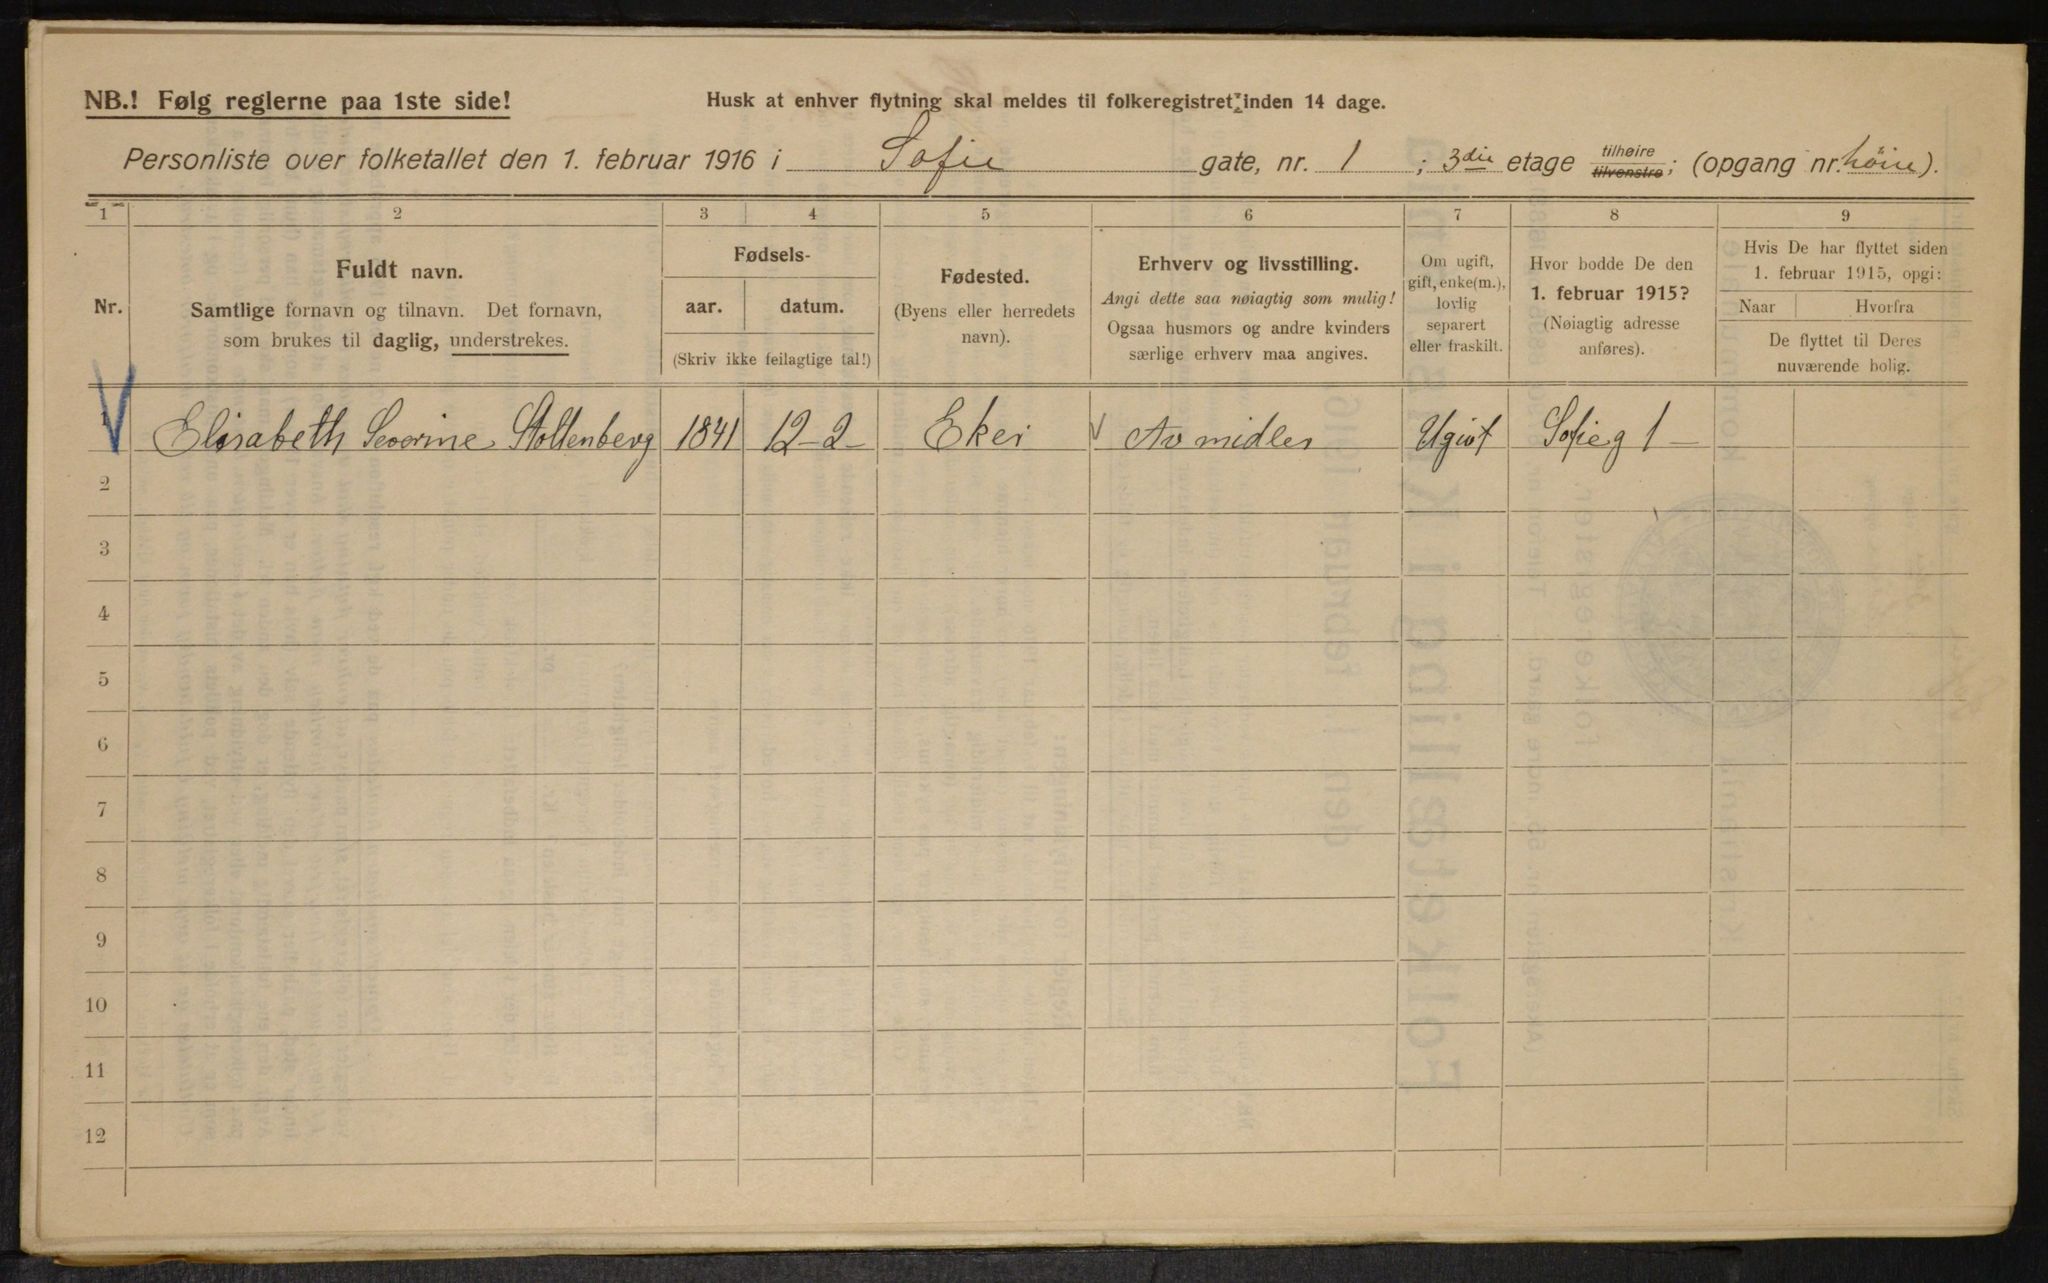 NB.! Følg reglerne paa 1ste side!
Husk at enhver flytning skal meldes til folkeregistret inden 14 dage.
Personliste over folketallet den 1. februar 1916 i Sofie gate, nr. 1 ; 3die etage tilhøire tilvenstre; (opgang nr. höire).
1 2 3 4 5 6 7 8 9
Nr.
Fuldt navn.
Samtlige fornavn og tilnavn. Det fornavn,
som brukes til daglig, understrekes.
Fødsels-
aar. datum.
(Skriv ikke feilagtige tal!)
Fødested.
(Byens eller herredets
navn).
Erhverv og livsstilling.
Angi dette saa nøiagtig som mulig!
Ogsaa husmors og andre kvinders
særlige erhverv maa angives.
Om ugift,
gift, enke(m.),
lovlig
separert
eller fraskilt.
Hvor bodde De den
1. februar 1915?
(Nøiagtig adresse
anføres).
Hvis De har flyttet siden
1. februar 1915, opgi:
Naar Hvorfra
De flyttet til Deres
nuværende bolig.
1 Elisabeth Severine Stoltenberg 1841 12-2- Eker Av midler Ugift Sofieg 1 –
2
3
4
5
6
7
8
9
10
11
12